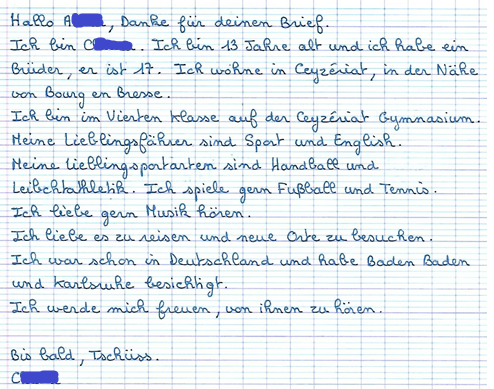 Hallo A, Danke für deinen Brief.
Ich bin C. Ich bin 13 Jahre alt und ich habe ein
Brüder, er ist 17. Ich wöhne in Ceyzériat, in der Nähe
von Bourg en Bresse.
Ich bin im Vierten Klasse auf der Ceyzériat Gymnasium.
Meine Lieblingsfährer sind Sport und English.
Meine Lieblingsportarten sind Handball und
Leibchtathletik. Ich spiele gern Fußball und Tennis.
Ich liebe gern Musik hören.
Ich liebe es zu reisen und neue Orte zu besuchen.
Ich war schon in Deutschland und habe Baden Baden
und Karlsruhe besichtigt.
Ich werde mich freuen, von ihnen zu hören.
Bis bald, Tschüss.
C